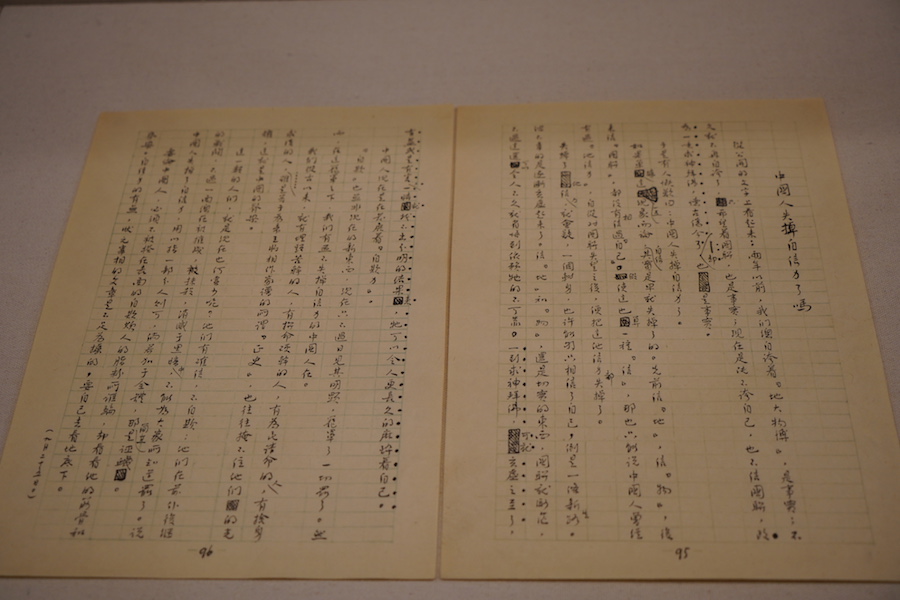 中國人失掉自信力了嗎
從公開的文字上看起來:兩年以前,我們總自誇着「地大物博」,是事實;不
久就不再自誇了,只希望着國聯,也是事實;現在是既不誇自己,也不信國聯,改
為一味求神拜佛,懷古傷今了,卻也是事實。
于是有人慨歎曰:中國人失掉自信力了。
如果單據這一點現象而論,自信其實是早就失掉了的。先前信「地」,信「物」,後
來信「國聯」,都沒有相信過「自己」。假使這也算一種「信」,那也只能說中國人曾經
有過「他信力」,自從對國聯失望之後,便把這他信力都失掉了。
失掉了他信力,就會疑,一個轉身,也許能夠只相信了自己,倒是一條新生路,
但不幸的是逐漸玄虛起來了。信「地」和「物」,還是切實的東西,國聯就渺茫,
不過這還可以令人不久就省悟到依賴它的不可靠。一到求神拜佛,可就玄虛之至了,
有益或是有害,一時就找不出分明的結果來,它可以令人更長久的麻醉着自己。
中國人現在是在發展着「自欺力」。
「自欺」也並非現在的新東西,現在只不過日見其明顯,籠罩了一切罷了。然
而,在這籠罩之下,我們有並不失掉自信力的中國人在。
我們從古以來,就有埋頭苦幹的人,有拚命硬幹的人,有為民請命的人,有捨身
求法的人,……雖是等於為帝王將相作家譜的所謂「正史」,也往往掩不住他們的光
耀,這就是中國的脊梁。
這一類的人們,就是現在也何嘗少呢?他們有確信,不自欺;他們在前仆後繼
的戰鬥,不過一面總在被摧殘,被抹殺,消滅于黑暗中,不能為大家所知道罷了。說
中國人失掉了自信力,用以指一部分人則可,倘若加于全體,那簡直是誣衊。
要論中國人,必須不被搽在表面的自欺欺人的脂粉所誆騙,卻看看他的筋骨和
脊梁。自信力的有無,狀元宰相的文章是不足為據的,要自己去看地底下。
95
96